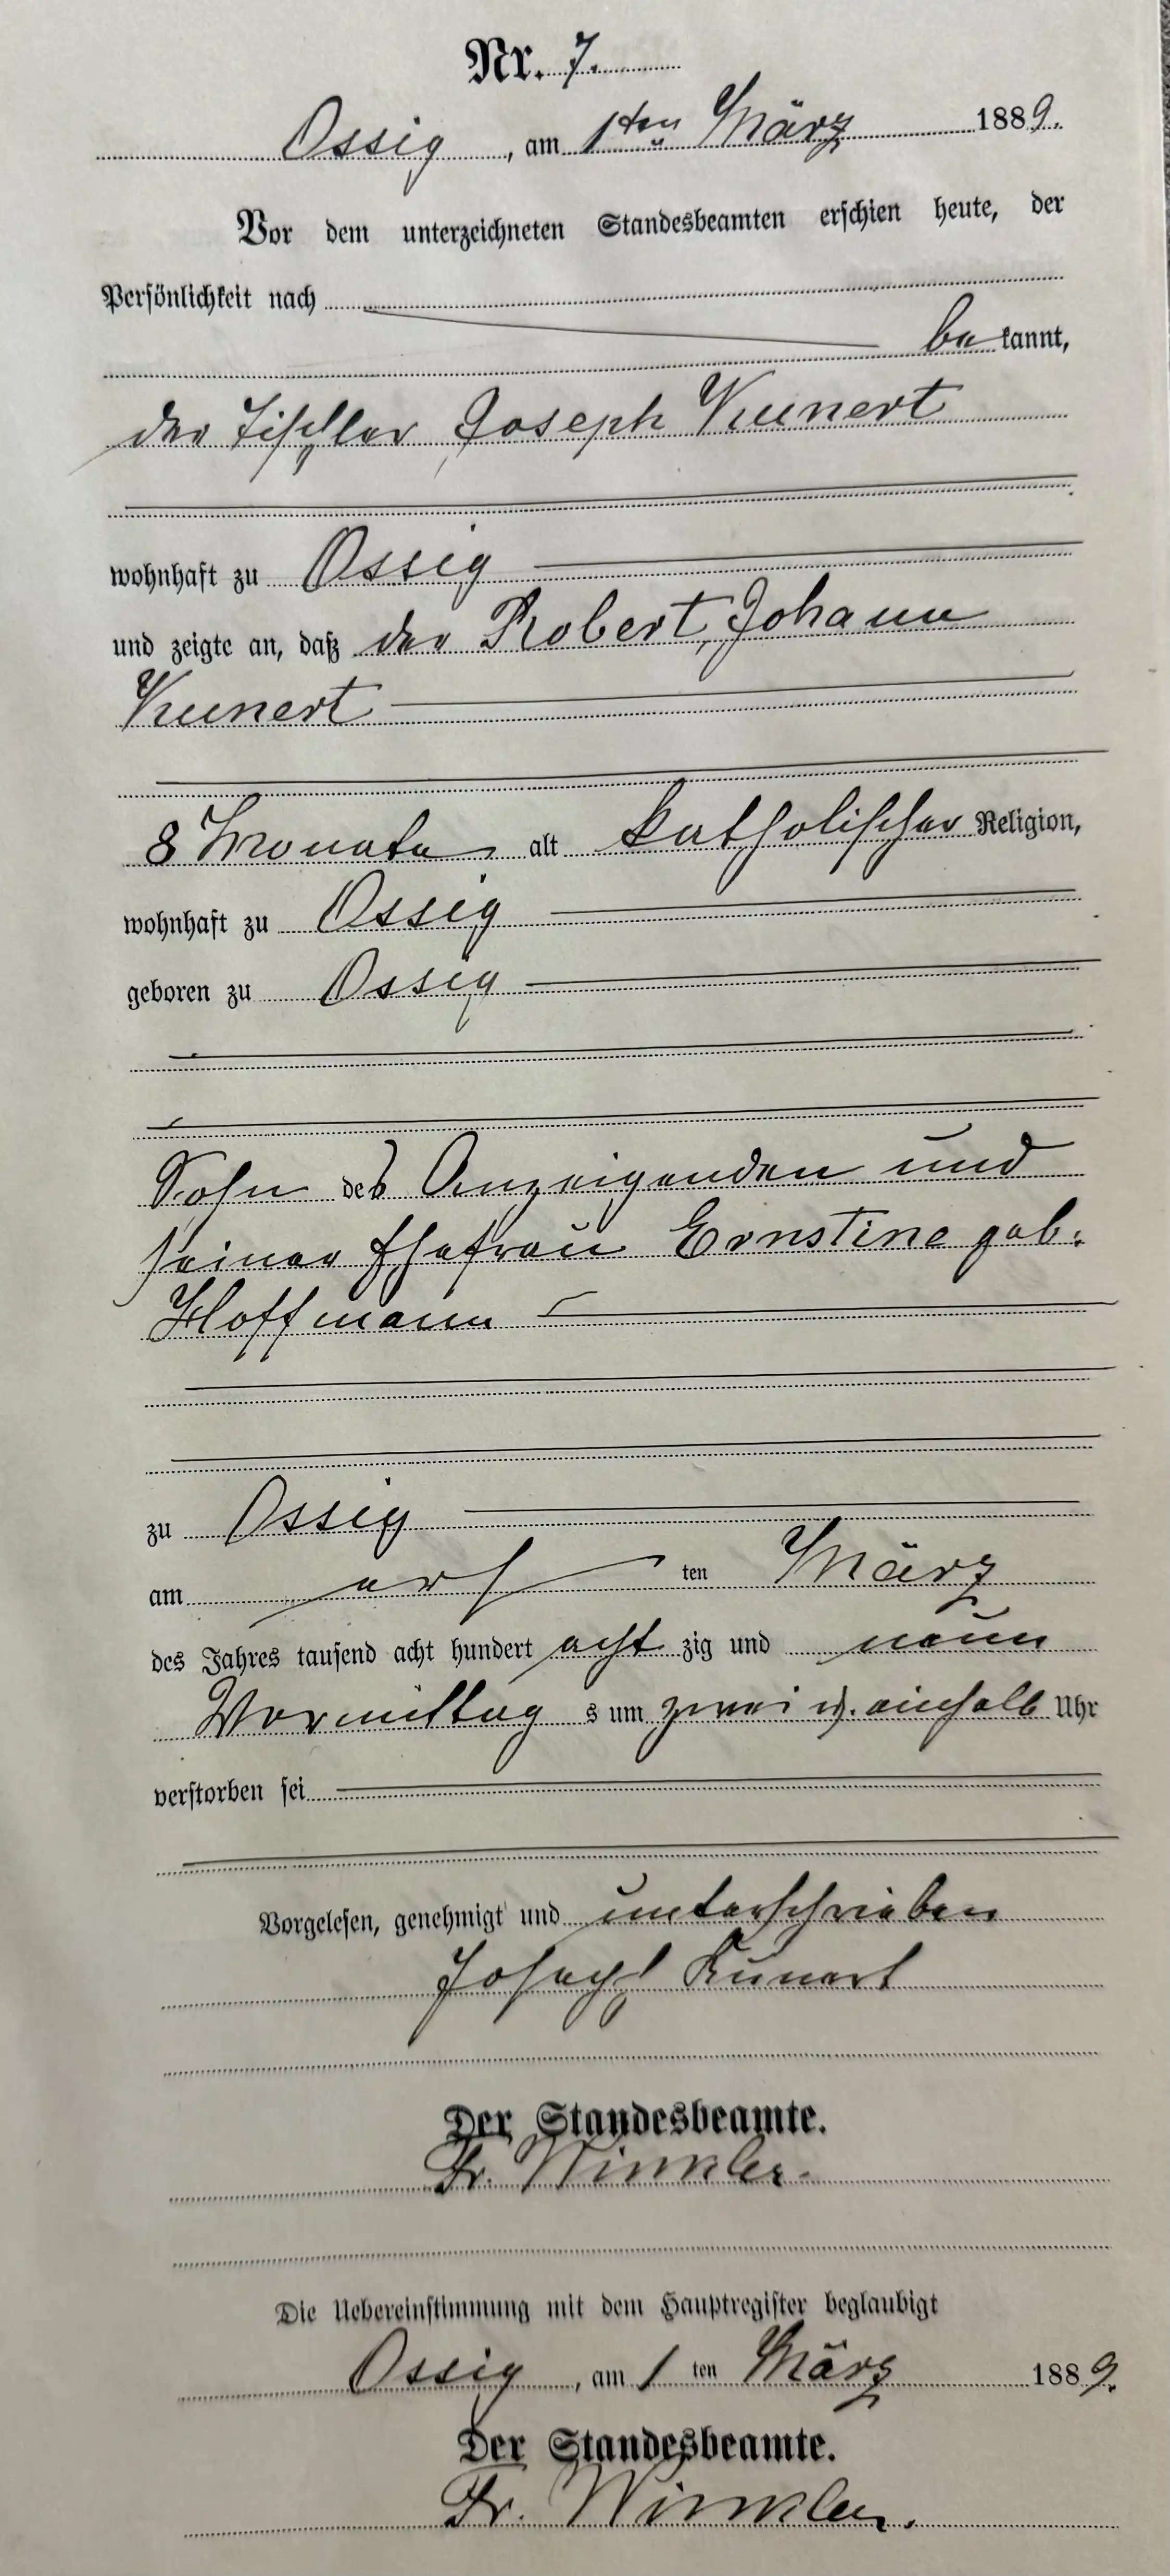 Nr. 7.
Ossig, am 1ten März 1889.
Vor dem unterzeichneten Standesbeamten erschien heute, der
Persönlichkeit nach
be kannt,
der Tischler Joseph Kunert
wohnhaft zu Ossig
und zeigte an, daß der Robert, Johann
Kunert
8 Monate alt katholischer Religion,
wohnhaft zu Ossig
geboren zu Ossig
Sohn des Anzeigenden und
seiner Ehefrau Ernstine geb.
Hoffmann
zu Ossig
am ers ten März
des Jahres tausend acht hundert acht zig und neun
Vormittag s um zwei u. einhalb Uhr
verstorben sei
Vorgelesen, genehmigt und unterschrieben
Joseph Kunert
Der Standesbeamte.
Fr. Winkler.
Die Uebereinstimmung mit dem Hauptregister beglaubigt
Ossig, am 1 ten März 1889.
Der Standesbeamte.
Fr. Winkler.